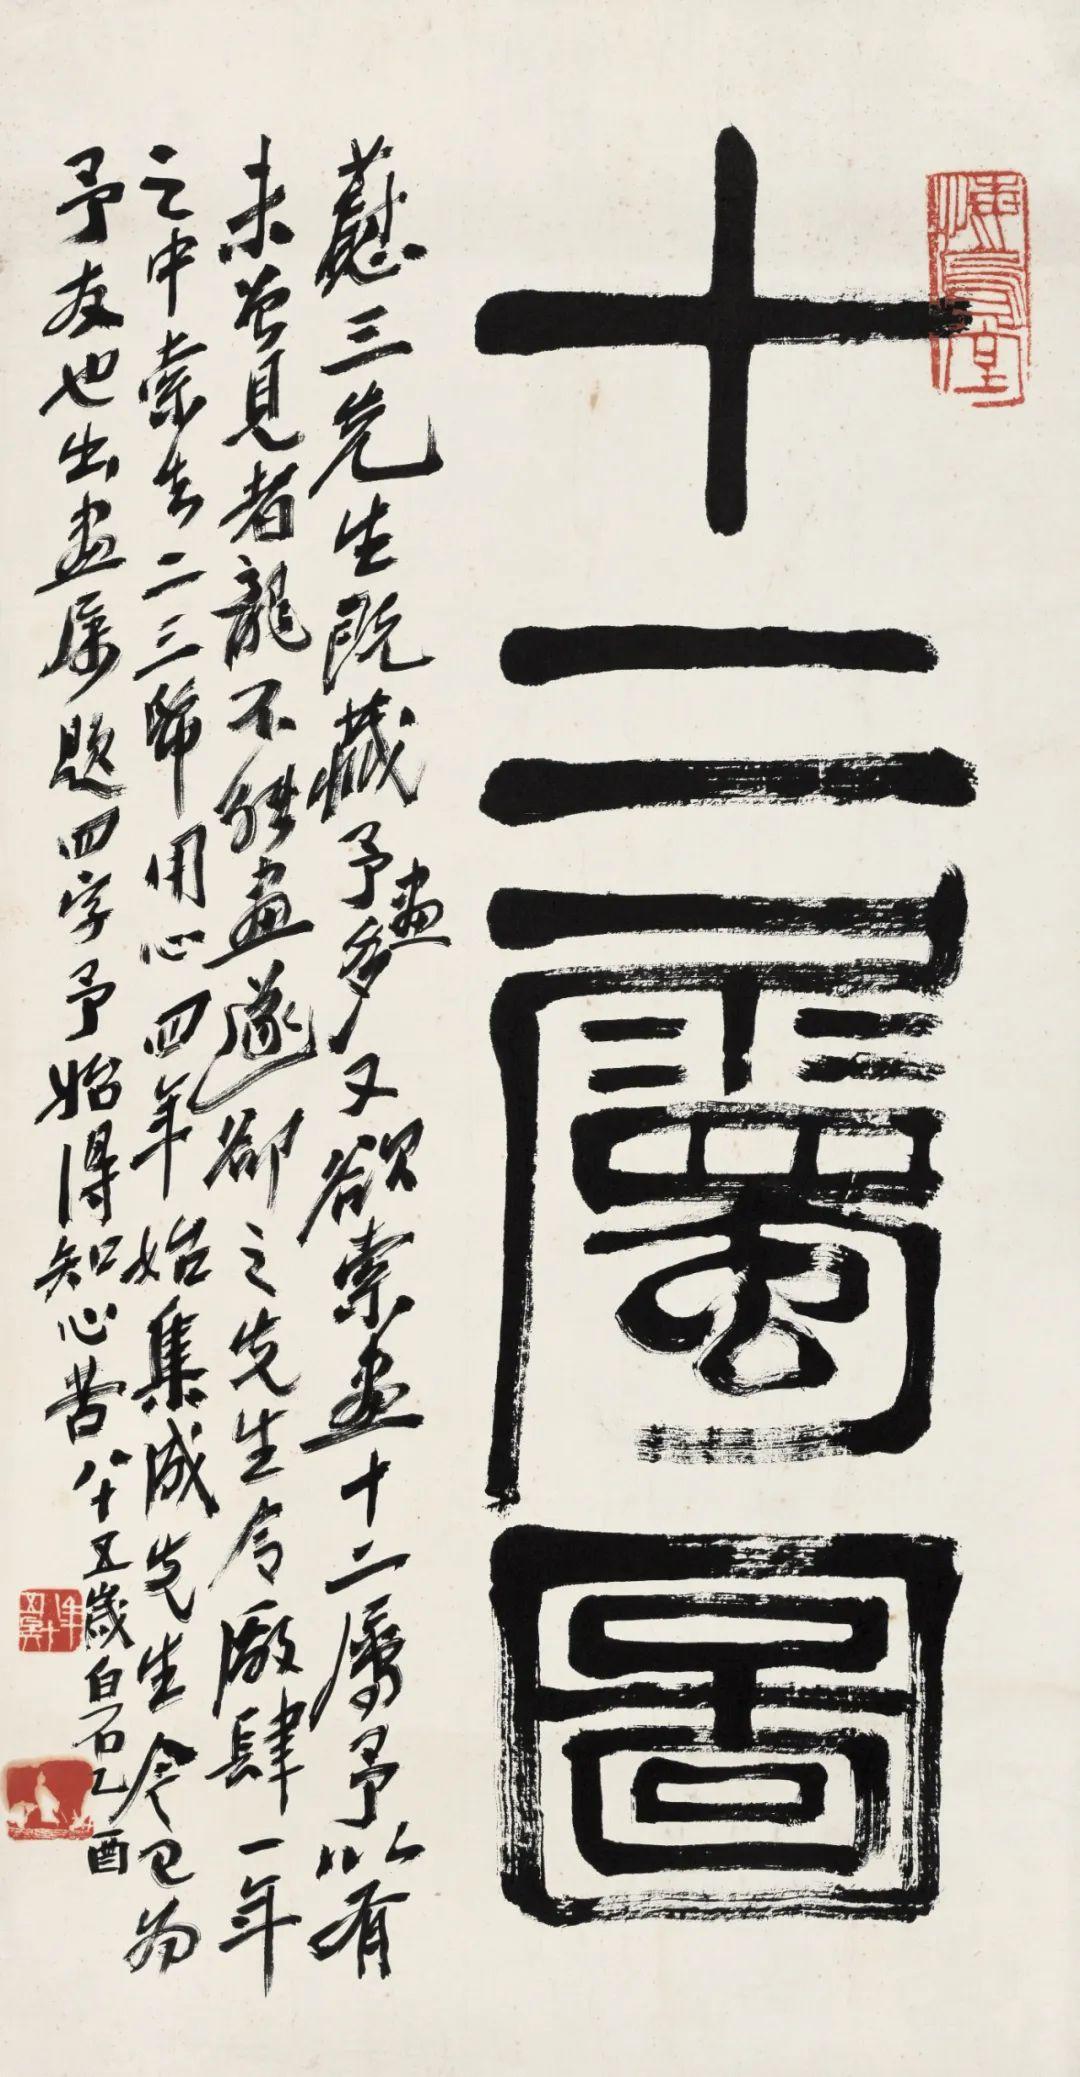 十二属圖
蘬三先生既藏予畫多又欲索畫十二属予以有
未曾見者龍不能畫遂卻之先生令廠肆一年
之中索去二三幀用心四年始集成先生今已為
予友也出畫属題四字予始得知心苦八十五歲白石乙酉